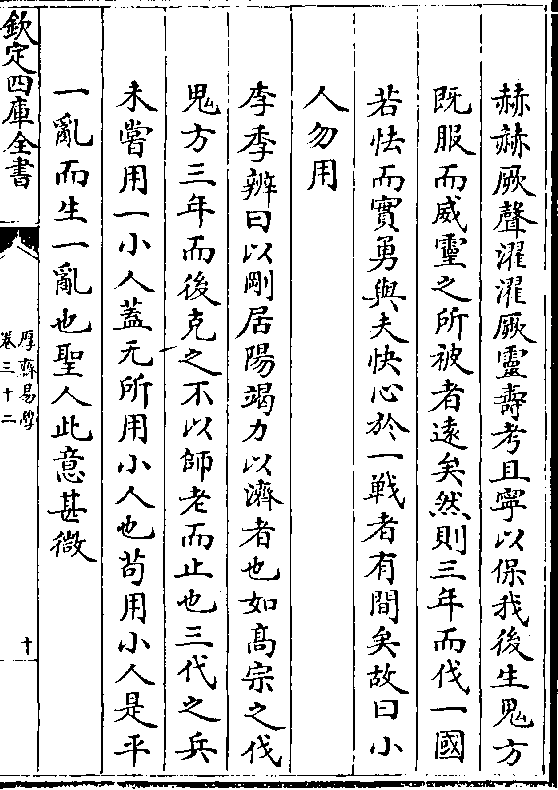 赫赫厥聲濯濯厥靈壽考且寧以保我後生鬼方
既服而威靈之所被者遠矣然則三年而伐一國
若怯而實勇與夫快心於一戰者有間矣故曰小
人勿用
李季辨曰以剛居陽竭力以濟者也如高宗之伐
鬼方三年而後克之不以師老而止也三代之兵
未嘗用一小人蓋无所用小人也苟用小人是平
一亂而生一亂也聖人此意甚微
欽定四庫全書
厚齋易學
卷三十二
十